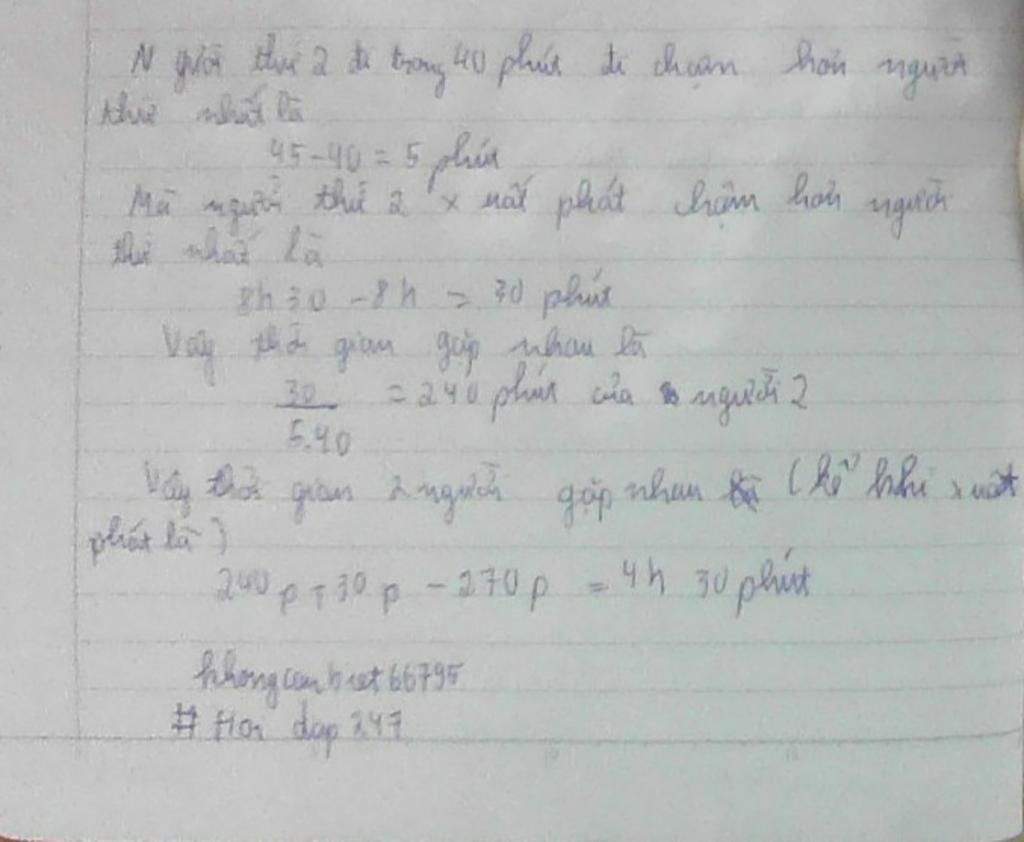 Người thứ 2 đi trong 40 phút đi chậm hơn người
thứ nhất là
45-40 = 5 phút
Mà người thứ 2 xuất phát chậm hơn người
thứ nhất là
8h30 - 8h = 30 phút
Vậy thời gian gặp nhau là
30/5.40 = 240 phút của người 2
Vậy thời gian 2 người gặp nhau (kể khi xuất
phát là)
240p + 30p = 270p = 4h 30 phút
khongcanbiet66795
# Hoi dap 247